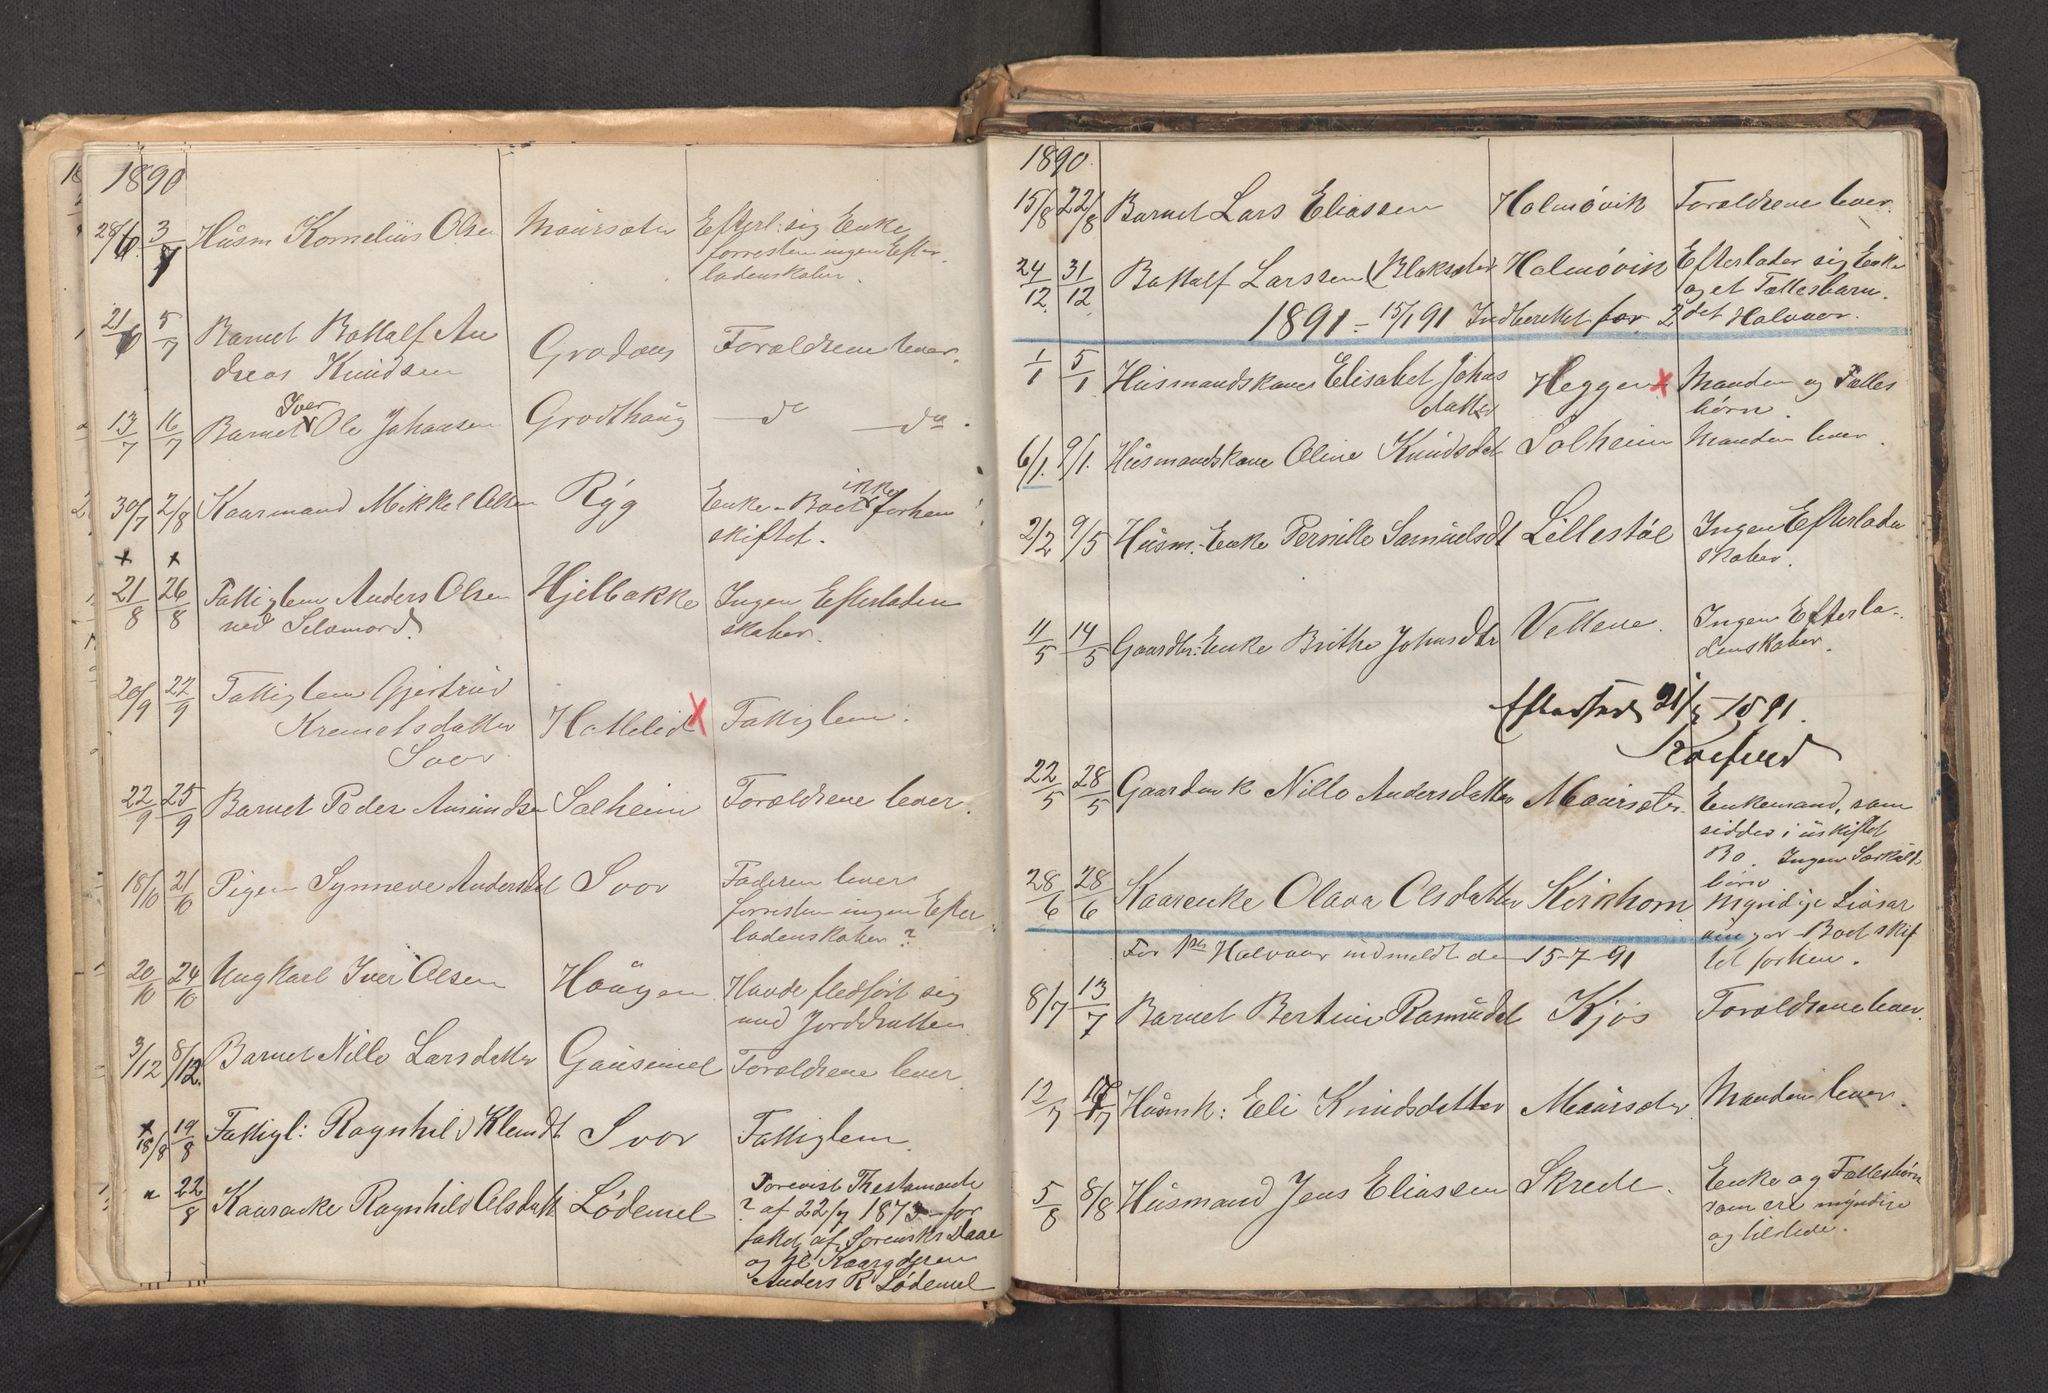 1890
28/6 3/7 Husm Kornelius Olsen Maurseter Efterl: sig Enke
forresten ingen Efter
ladenskaber.
21/6 5/7 Barnet Bottolf An
dreas Knudsen Grodaas Forældrene lever.
Iver
13/7 16/7 Barnet Ole Johansen Grodthaug — do — do.
30/7 2/8 Kaarmand Mikkel Olsen Ryg Enke - Boet ikke forhen
skiftet.
x x
21/8 26/8 Fattiglem Anders Olsen Hjelbakke Ingen Efterladen
ved Selvmord. skaber.
20/9 22/9 Fattiglem Gjertrud
Kremetsdatter Hottelid x Fattiglem.
Svor
22/9 25/9 Barnet Peder Amundsen Solheim Forældrene lever.
18/10 21/10 Pigen Synneve Andersdat Svor Faderen lever
forresten ingen Efter
ladenskaber?
20/10 24/10 Ungkarl Iver Olsen Haugen Havde fledført sig
med Jorddrotten
3/12 8/12. Barnet Nille Larsdatter Gausemel Forældrene lever.
x
18/8 19/8 Fattigl: Ragnhild Klemdt Svor Fattiglem.
" 22/8 Kaarenke Ragnhild Olsdatt Lødemel Forevist Thestamente
? af 22/7 1873 for
fattet af Sorenskr Daae
og til Kaargdjeren
Anders R Lødemel
1890.
15/8 22/8 Barnet Lars Eliassen Holmøvik Forældrene lever.
24/12 31/12 Bottolf Larssen (Blaksæter Holmøvik Efterlader sig Enke
og et Fællesbarn.
1891 - 15/1 91 Indberettet for 2det Halvaar.
1/1 5/1 Husmandskaner Elisabet Johns
datter Heggen x Manden og Fælles
børn.
6/1 9/1. Husmandskane Oline Knudsdat Solheim Manden lever.
2/2 9/5 Husm.-Enke Pernille Samuelsdt Lillestøl Ingen Efterladen
skaber.
11/5 14/5 Gaardbr: Enke Brithe Johnsdtr Vellene. Ingen Efterla-
denskaber.
Efterseet 21/5 1891.
Koefoed
22/5 28/5 Gaardmk Nille Andersdatter Maurseter. Enkemand, som
sidder i uskiftet
Bo. Ingen Særkuld
børn
28/6 28/6 Kaarenke Olava Olsdatter Kirkhorn Myndige Livsar
vinger Boet skif
tet forhen.
For 1ste Halvaar indmeldt den 15-7-91
8/7 13/7 Barnet Bertine Rasmusdt Kjøs Forældrene lever.
12/7 17/7 Husmk: Eli Knudsdatter Maurseter Manden lever.
5/8 8/8 Husmand Jens Eliassen Skrede. Enke og Fællesbørn
som ere myndige
og tilstede.